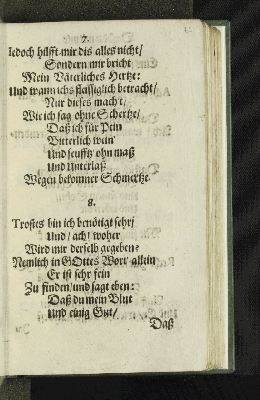 7.
Jedoch hilfft mir dis alles nicht/
Sondern mir bricht
Mein Väterliches Hertze:
Und wann ichs fleissiglich betracht/
Nur dieses macht/
Wie ich sag ohne Schertze/
Daß ich für Pein
Bitterlich wein'
Und seuffz ohn maß
Und Unterlaß
Wegen bekomner Schmertze.
8.
Trostes bin ich benötigt sehr/
Und/ ach/ woher
Wird mir derselb gegeben?
Nemlich in GOttes Wort allein
Er ist sehr fein
Zu finden/ und sagt eben:
Daß du mein Blut
Und einig Gut/
Daß